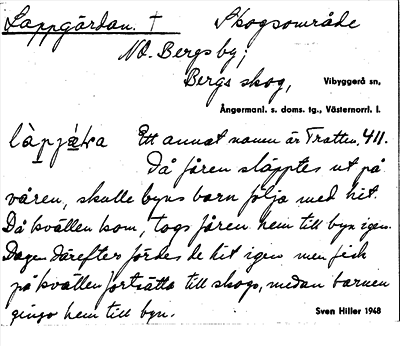 Lappgärdan. † Skogsområde
NO. Bergs by;
Bergs skog, Vibyggerå sn,
Ångermanl. s. doms. tg., Västernorrl. l.
Ett annat namn är Tratten, 411.
Då fåren släpptes ut på
våren, skulle byns barn följa med hit.
Då kvällen kom, togs fåren hem till byn igen.
Dagen därefter fördes de hit igen men fick
på kvällen fortsätta till skogs, medan barnen
gingo hem till byn.
Sven Hiller 1948